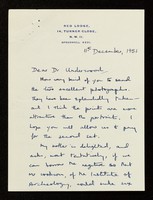 OLD LODGE,
14, TURNER CLOSE,
N.W. 11
SPEEDWELL
11th December, 1951
Dear Dr Underwood,
How very kind of you to send
the two excellent photographs.
They have been splendidly taken
and I think the prints are most
attractive than the portraits. I
hope you will allow us to pay
for the second set.
My mother is delighted, and
asks, most tentatively, if we
can borrow the negative so that
our bookroom, of the Institute of
Archaeology, could make one